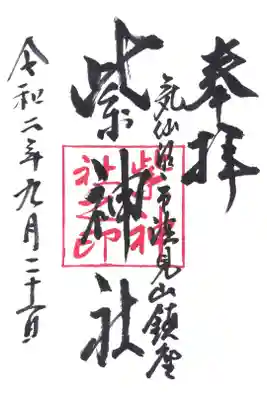 奉拝
気仙沼市浜見山鎮座
紫神社
紫神社之印
令和二年九月二十一日